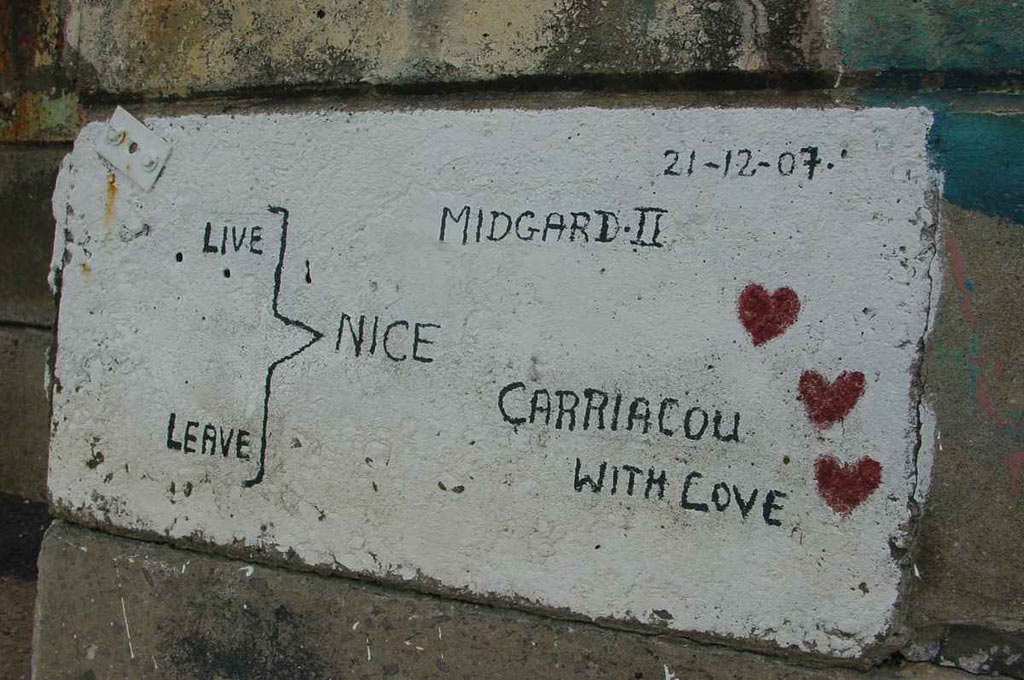 21-12-07.
MIDGARD·II
LIVE
NICE
LEAVE
CARRIACOU
WITH LOVE